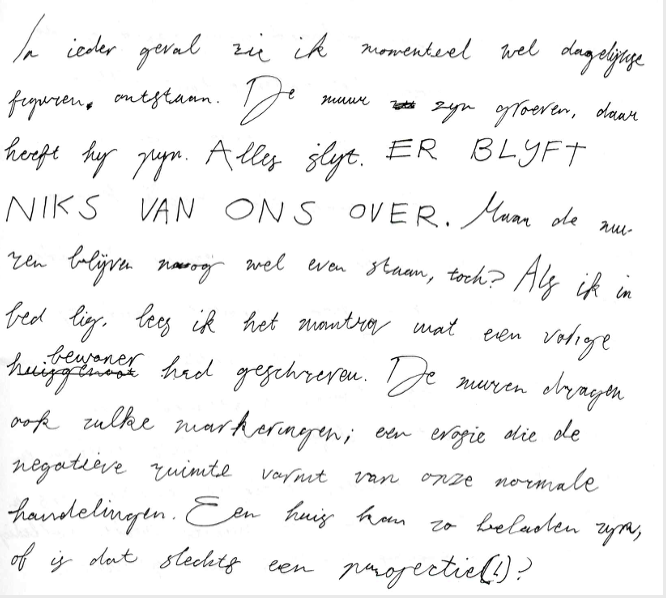 In ieder geval zie ik momenteel wel dagelijkse
figuren. ontstaan. De muur zyn groeven, daar
heeft hy pyn. Alles slyt. ER BLYFT
NIKS VAN ONS OVER. Maar de mu-
ren blijven nog wel even staan, toch? Als ik in
bed lig, lees ik het mantra wat een vorige
bewoner had geschreven. De muren dragen
ook zulke markeringen; een erosie die de
negatieve ruimte vormt van onze normale
handelingen. Een huis kan zo beladen zyn,
of is dat slechts een projectie(!)?